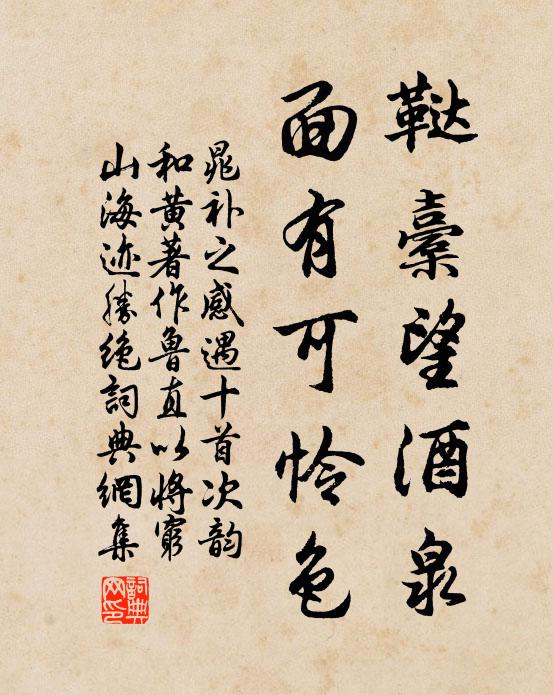 鞑櫜望酒泉
面有可怜色
晁补之感遇十首次韵
和黄著作鲁直以将穷
山海迹胜绝詞典網集
詞典网印